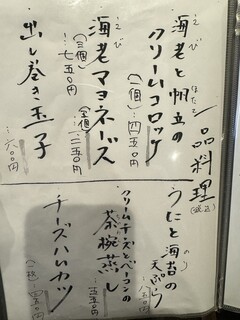 一品料理(税込)
海老と帆立の
えび
ほたて
クリームコロッケ
(一個)…四五〇円
海老マヨネーズ
えび
(三個)…七五〇円
(五個)…一二五〇円
出し巻き玉子
…六〇〇円
うにと海苔の天ぷら
のり
クリームチーズとベーコンの
茶椀蒸し
…五五〇円
チーズハムカツ